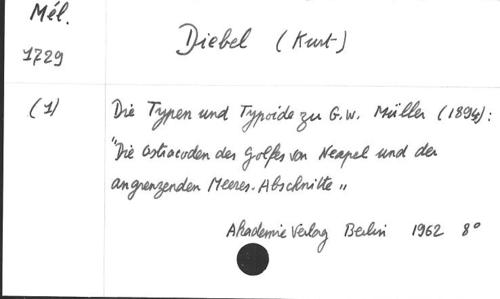 Mél.
1729
Diebel (Kurt)
(1)
Die Typen und Typoide zu G.W. Müller (1894):
"Die Ostracoden des Golfes von Neapel und der
angrenzenden Meeres-Abschnitte"
Akademie Verlag Berlin 1962 8°